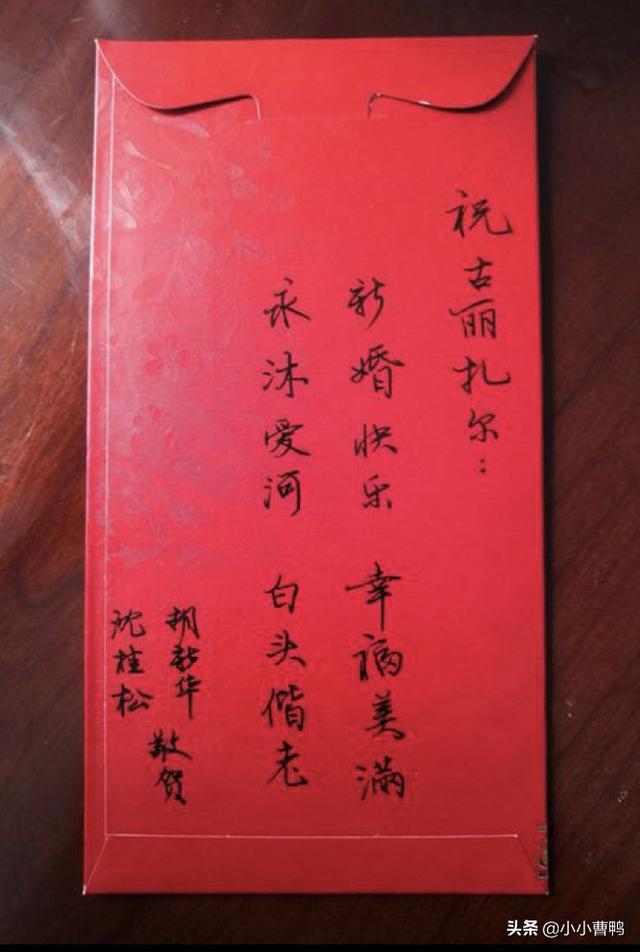 祝古丽扎尔：
新婚快乐 幸福美满
永沐爱河 白头偕老
胡新华
沈桂松
敬贺
头条 @小小曹鸭